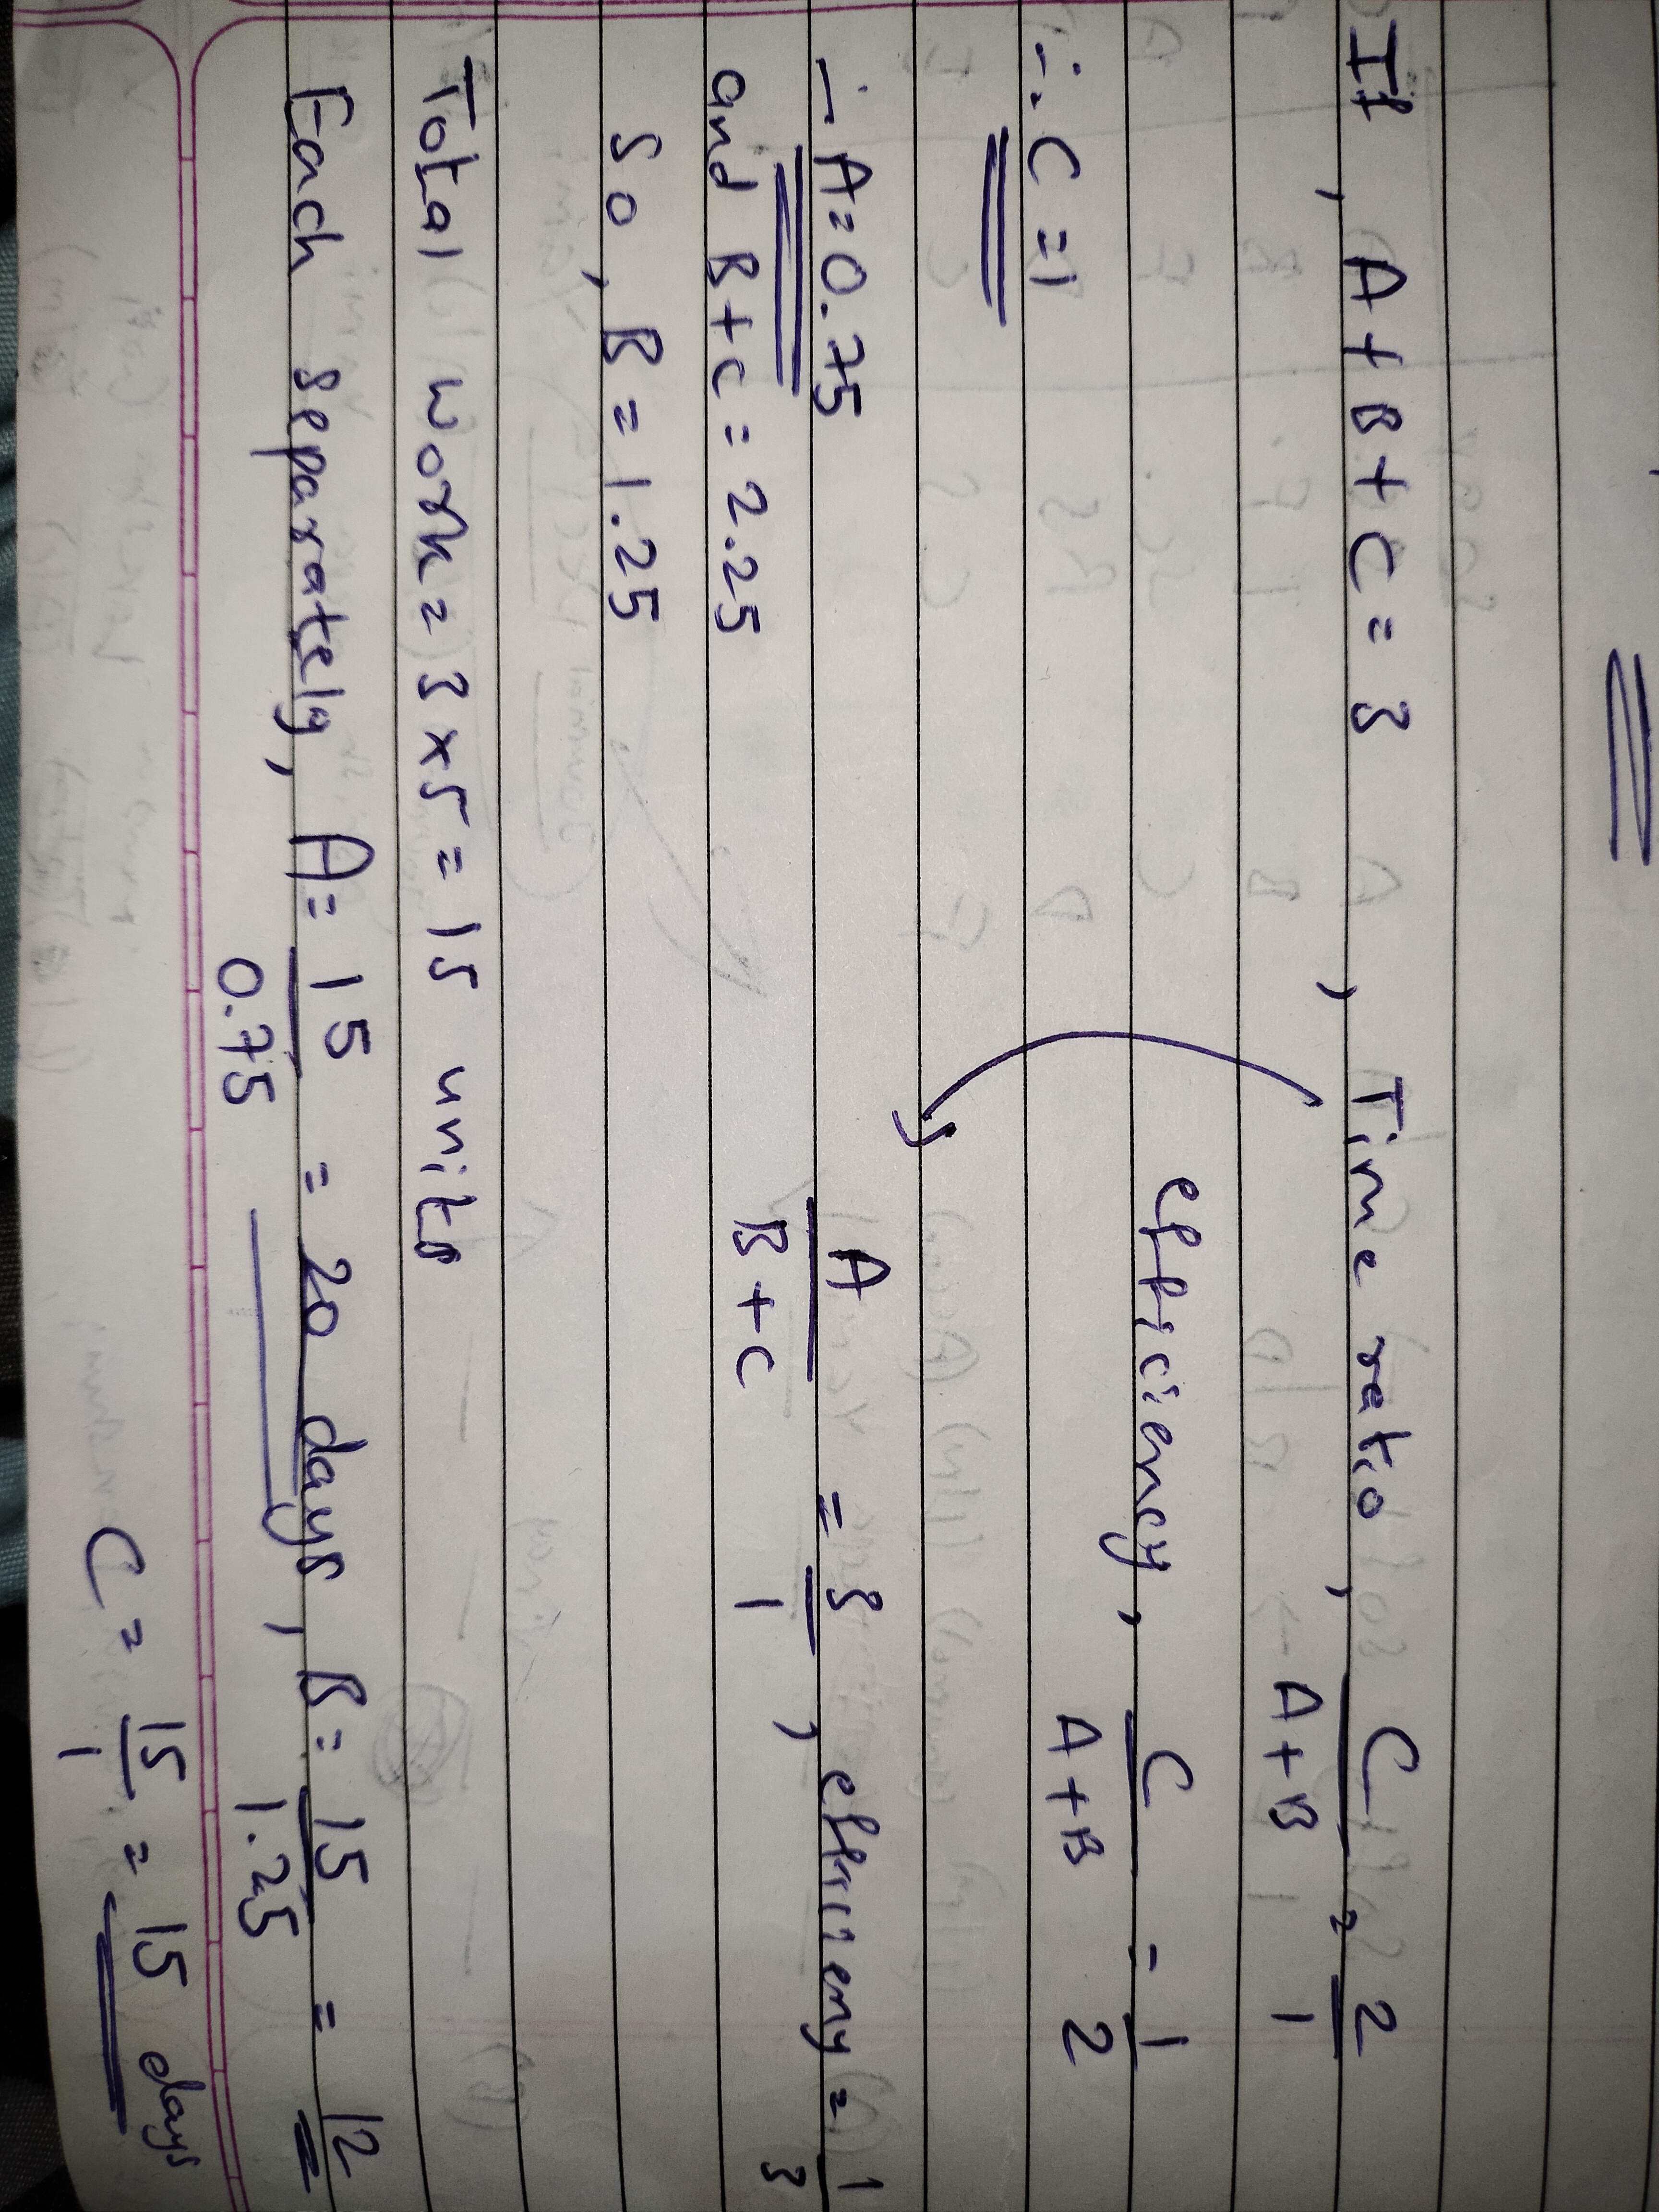 If, A+B+C = 3 , Time ratio, C/A+B = 2/1
efficiency, C/A+B = 1/2
∴ C = 1
∴ A = 0.75 A/B+C = 3/1, efficiency = 1/3
and B+C = 2.25
So, B = 1.25
Total work = 3 × 5 = 15 units
Each separately, A = 15/0.75 = 20 days, B = 15/1.25 = 12
C = 15/1 = 15 days